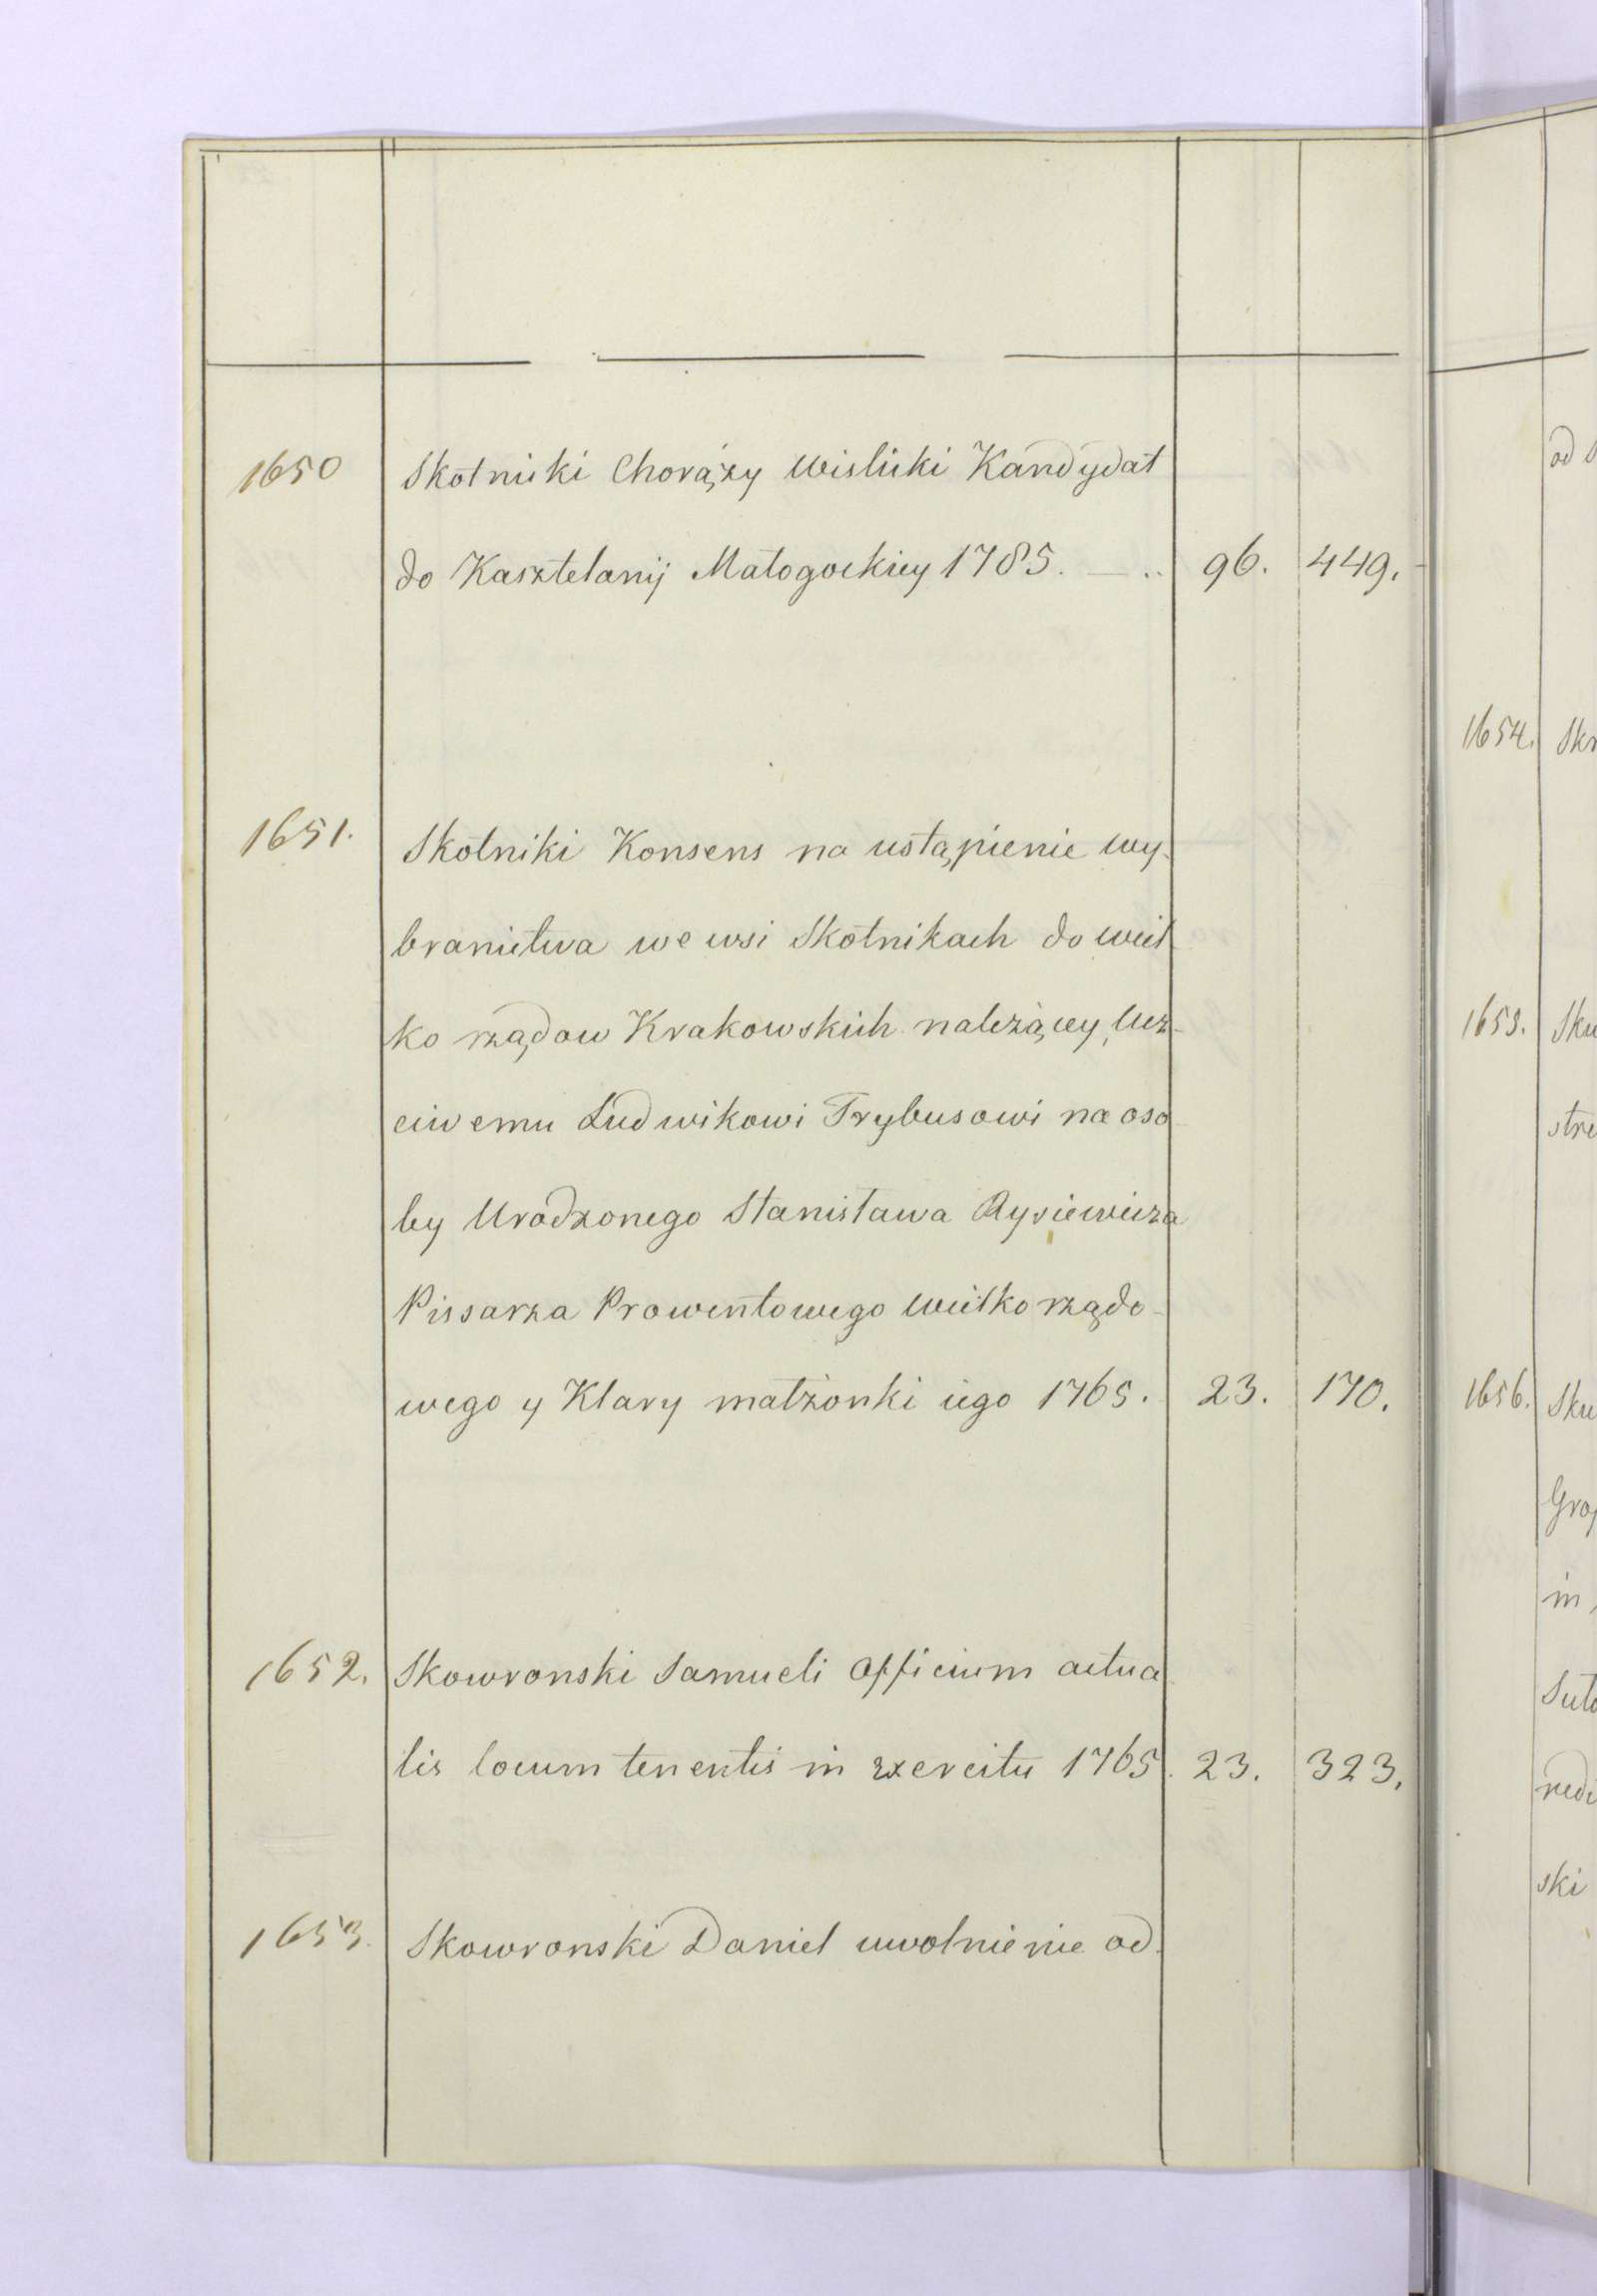 1650 Skotnicki Chorąży Wislicki Kandydat
do Kasztelanij Małogockiey 1785. — .. 96. 449.
1651. Skotniki Konsens na ustąpienie wy-
branictwa we wsi Skotnikach do wiel-
ko rządow Krakowskich należącey, ucz-
ciwemu Ludwikowi Trybusowi na oso
by Urodzonego Stanisława Rysiewicza
Pissarza Prowentowego wielko rządo-
wego y Klary małżonki iego 1765. 23. 170.
1652. Skowronski Samueli officium actua
lis locum tenentis in exercitu 1765. 23. 323.
1653. Skowronski Daniel uwolnienie od.
od
1654. Skr
1655. Sku
stre
1656. Sku
Gra
in
Suto
redi
ski